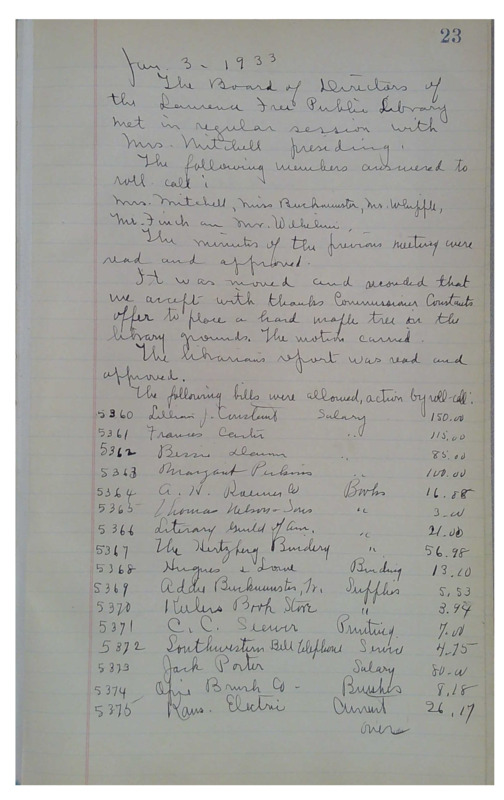 23
Jan. 3 - 1933
The Board of Directors of
the Lawrence Free Public Library
met in regular session with
Mrs. Mitchell presiding.
The following members answered to
roll call:
Mrs. Mitchell, Miss Buckmaster, Mr. Whipple,
Mr. Finch an Mr. Wilhelmi.
The minutes of the previous meeting were
read and approved.
It was moved and seconded that
we accept with thanks Commissioner Constants
offer to place a hard maple tree on the
library grounds. The motion carried.
The librarians report was read and
approved.
The following bills were allowed, action by roll-call:
5360 Lillian J. Constant Salary 150.00
5361 Frances Carter " 115.00
5362 Bessie " 85.00
5363 Margaret Perkins " 100.00
5364 A. H. Roemer Co Books 16.88
5365 Thomas Nelson - Sons " 3.00
5366 Literary Guild of Am. " 21.00
5367 The Hertzberg Bindery " 56.98
5368 Hughes & Binding 13.10
5369 Addie Buckmaster, Tr. Supplies 5.53
5370 Keelers Book Store " 3.94
5371 C. C. Seewir Printing 7.00
5372 Southwestern Bell Telephone Service 4.75
5373 Jack Porter Salary 80.00
5374 Brush Co - Brushes 8.18
5375 Kans. Electric Current 26.17
over